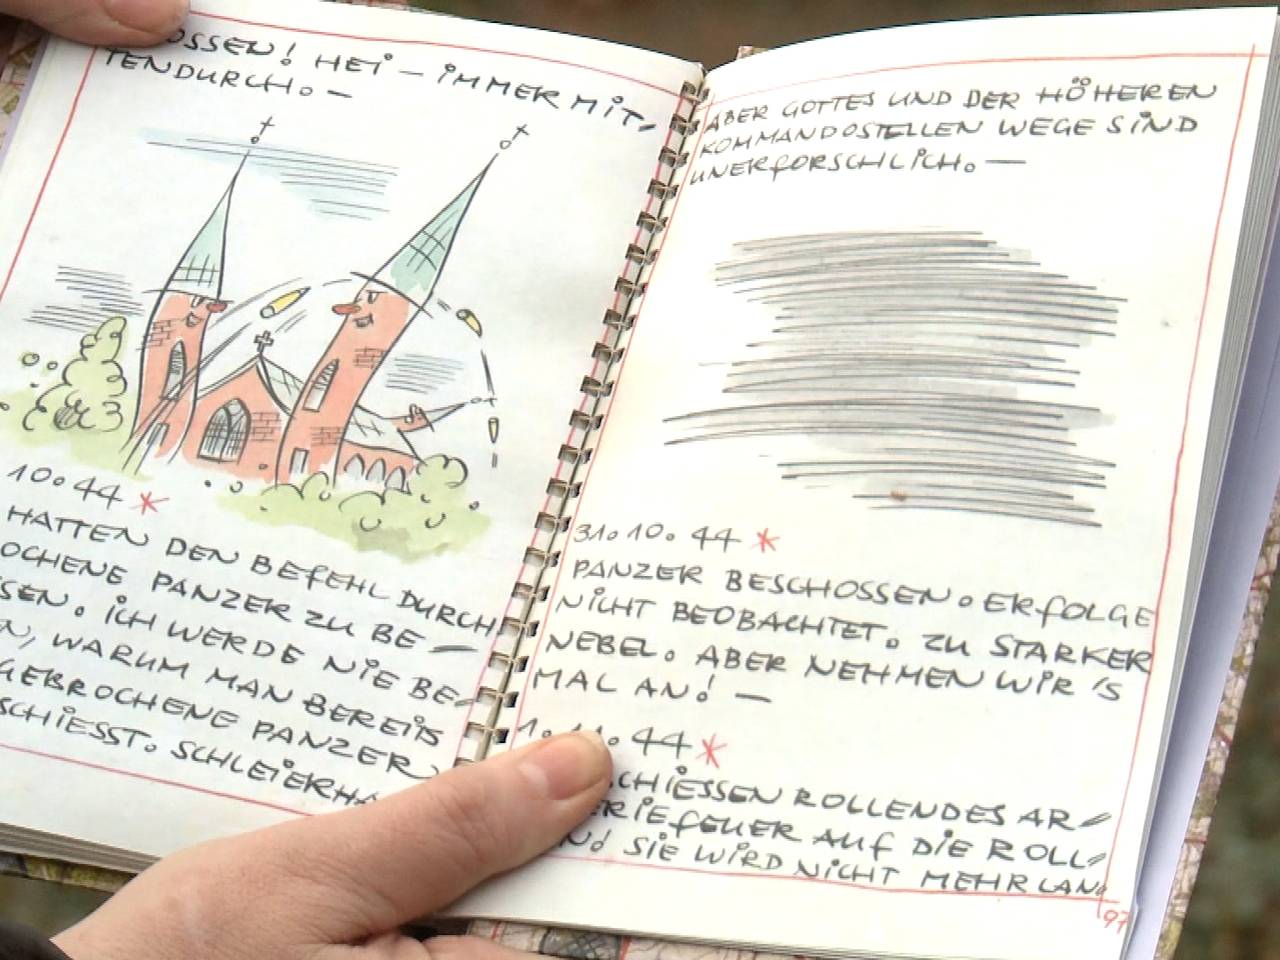 OSSEN! HEI – IMMER MIT-
TENDURCH. –
10.44 *
HATTEN DEN BEFEHL DURCH
OCHENE PANZER ZU BE –
SSEN. ICH WERDE NIE BE-
EN, WARUM MAN BEREITS
GEBROCHENE PANZER
SCHIESST. SCHLEIERHA
ABER GOTTES UND DER HÖHEREN
KOMMANDOSTELLEN WEGE SIND
UNERFORSCHLICH. –
31.10.44 *
PANZER BESCHOSSEN. ERFOLGE
NICHT BEOBACHTET. ZU STARKER
NEBEL. ABER NEHMEN WIR 'S
MAL AN! –
1.11.44 *
CHIESSEN ROLLENDES AR-
ERIEFEUER AUF DIE ROLL-
N! SIE WIRD NICHT MEHR LAN-
97